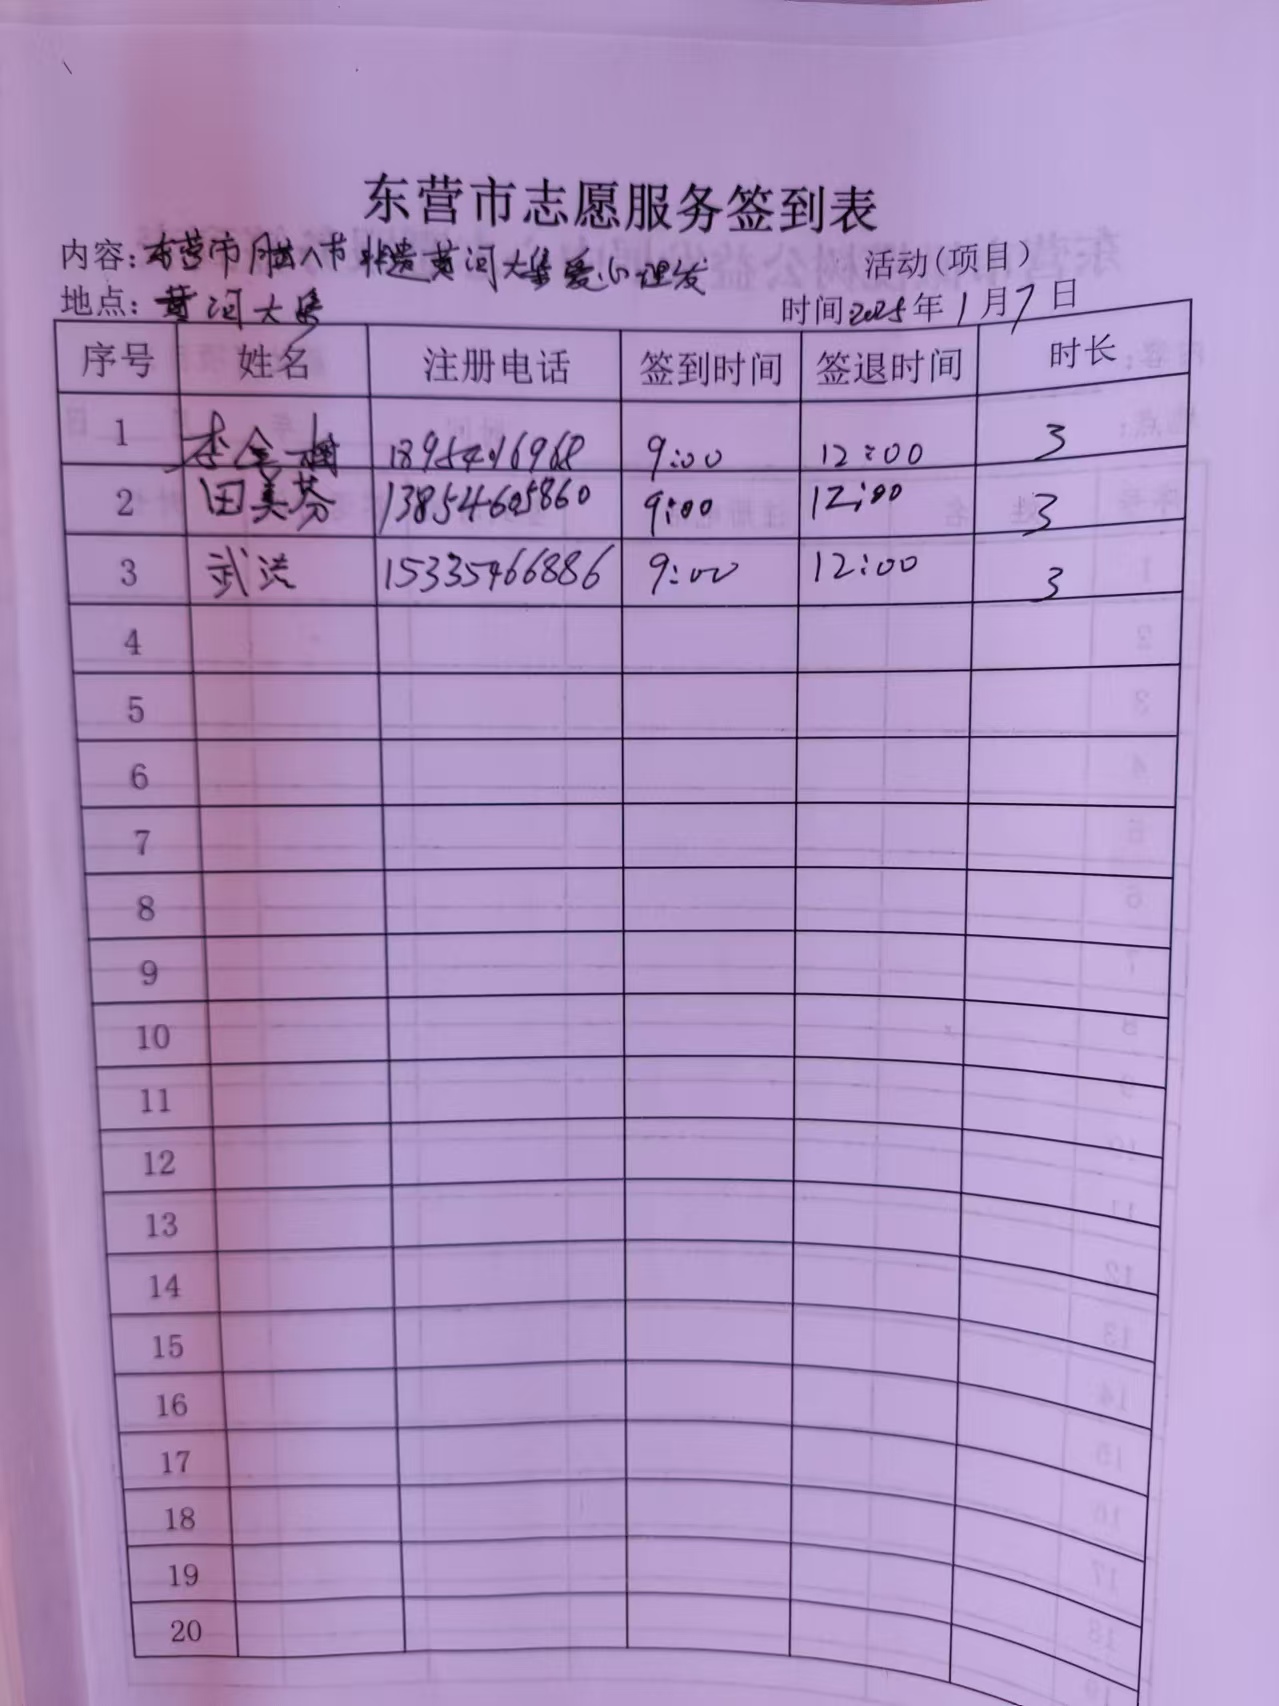 东营市志愿服务签到表
内容：东营市 腊八节 非遗黄河大集爱心理发 活动（项目）
地点：黄河大集 时间2025年1月7日
序号 姓名 注册电话 签到时间 签退时间 时长
1 李金 9:00 12:00 3
2 田美芬 13854605860 9:00 12:00 3
3 武洪 15335466886 9:00 12:00 3
4
5
6
7
8
9
10
11
12
13
14
15
16
17
18
19
20